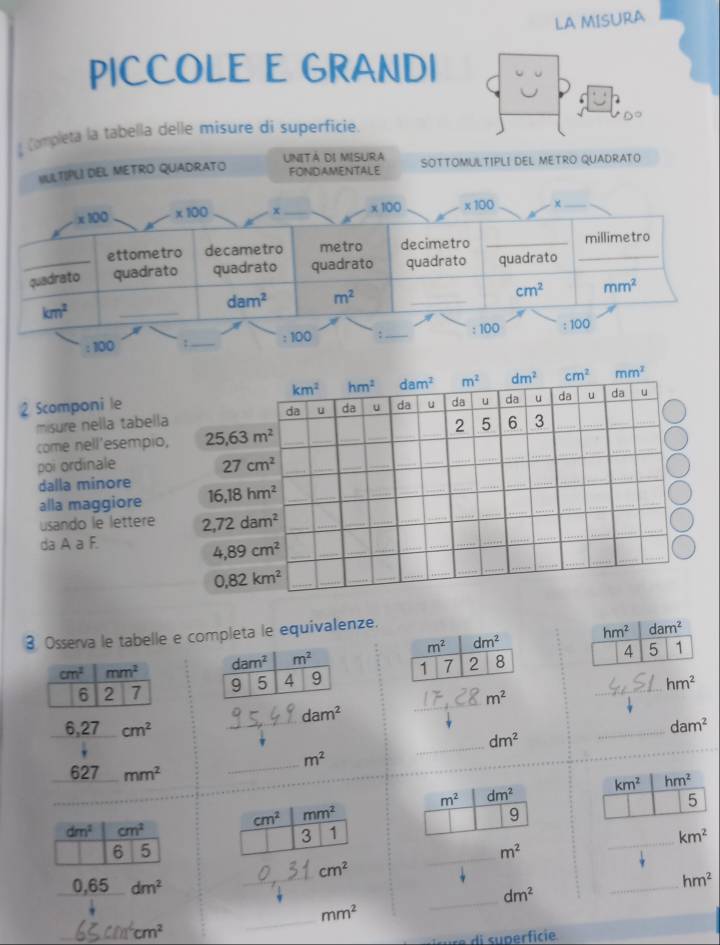 LA MISURA
PICCOLE E GRANDI
Completa la tabella delle misure di superficie.
MULTIPLI DEL METRO QUADRATO
UNITÀ DI MISURA FONDAMENTALE
SOTTOMULTIPLI DEL METRO QUADRATO
x 100 x 100 x ____ x 100 x 100 x ____
____ quadrato
ettometro quadrato
decametro quadrato
metro quadrato
decimetro quadrato
____ quadrato
millimetro ____
km² ____ dam² m² ____ cm² mm²
: 100 : ____ : 100 : ____ : 100 : 100
2 Scomponi le
misure nella tabella
come nell'esempio,
poi ordinale
dalla minore
alla maggiore
usando le lettere
da A a F.
km² hm² dam² m² dm² cm² mm²
da u da u da u da u da u da u da u
25,63 m² 2 5 6 3
27 cm²
16,18 hm²
2,72 dam²
4,89 cm²
0,82 km²
3 Osserva le tabelle e completa le equivalenze.
cm² mm²
6 2 7
6,27 cm²
627 mm²
dam² m²
9 5 4 9
95,49 dam²
____ m²
m² dm²
1 7 2 8
17,28 m²
____ dm²
hm² dam²
4 5 1
4,51 hm²
____ dam²
dm² cm²
6 5
0,65 dm²
65 cm² cm²
cm² mm²
3 1
0,31 cm²
____ mm²
m² dm²
9
____ m²
____ dm²
km² hm²
5
____ km²
____ hm²
di superficie